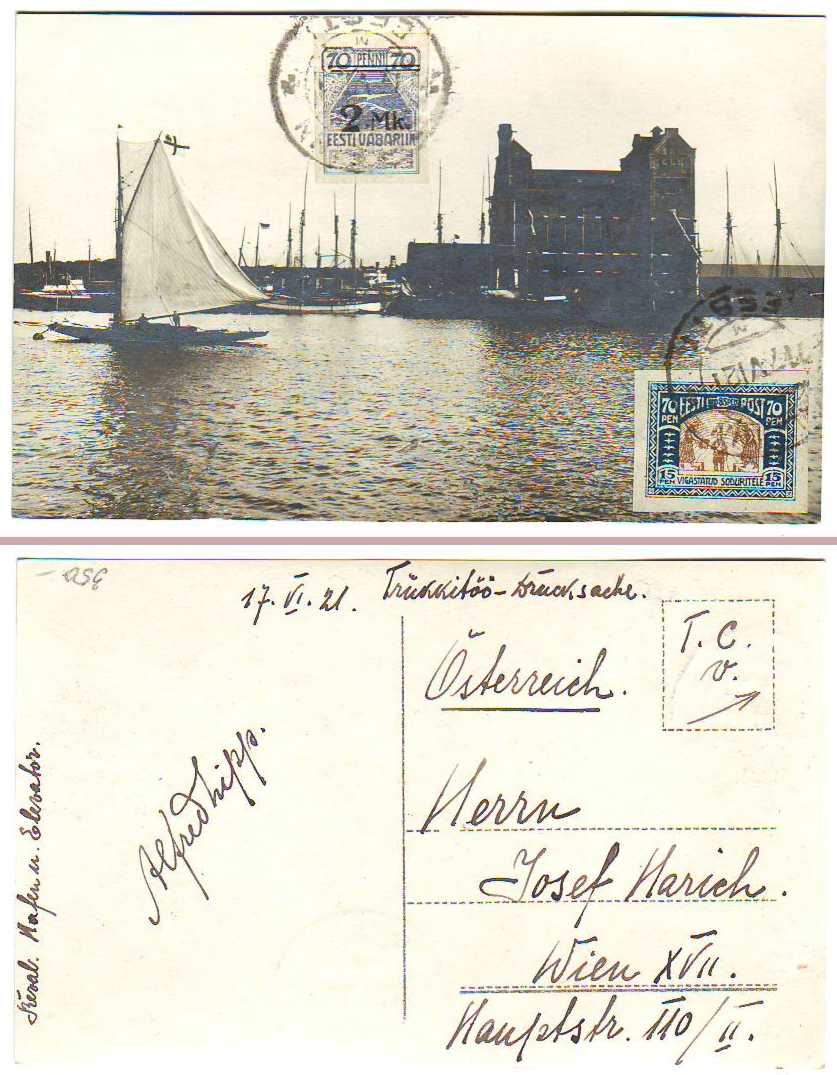 EESTI
70 PENNI 70
2 Mk.
EESTI VABARIIK
70 EESTI POST 70
PEN PEN
15 15
PEN VIGASTATUD SÕDURITELE PEN
17. VI. 21. Trükkitöö - Drucksache.
T. C.
v.
Österreich.
Herrn
Josef Harich.
Wien XVII.
Hauptstr. 110/II.
Alfred Hipp.
Reval. Hafen u. Elevator.